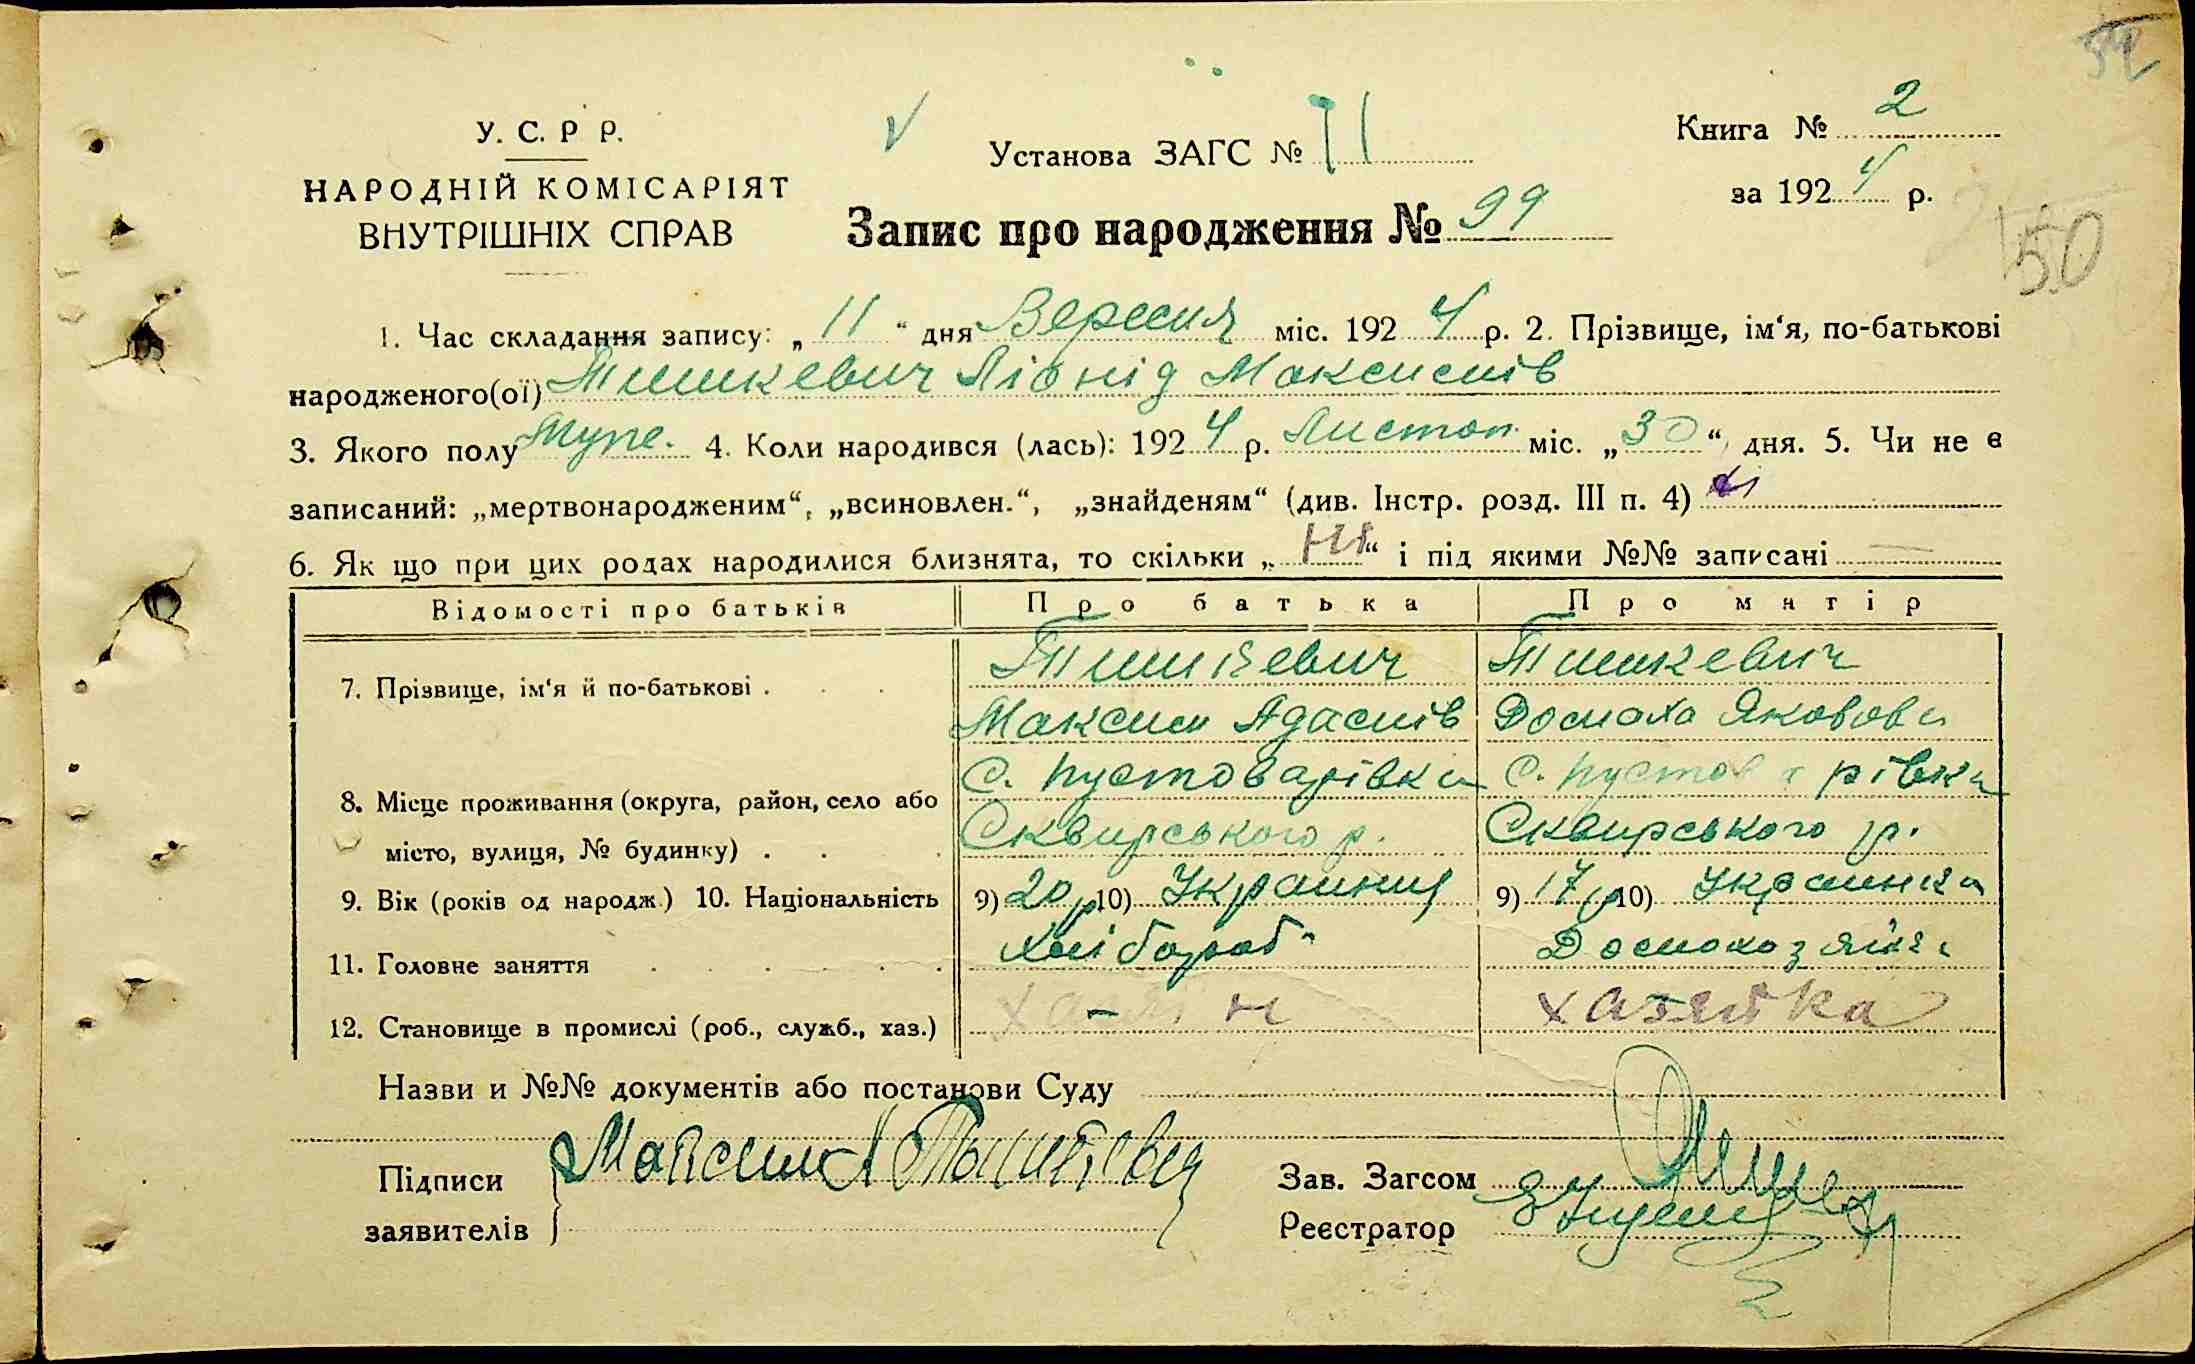 34
У. С. Р Р.
НАРОДНІЙ КОМІСАРІЯТ
ВНУТРІШНІХ СПРАВ
Установа ЗАГС № 71
Книга № 2
за 1924 р.
Запис про народження № 99
50
1. Час складання запису: „11“ дня Вересня міс. 1924 р. 2. Прізвище, ім‘я, по-батькові
народженого(ої) Тишкевич Ліонід Максимів
3. Якого полу Муже. 4. Коли народився (лась): 1924 р. Листоп. міс. „30“ дня. 5. Чи не є
записаний: „мертвонародженим“, „всиновлен.“, „знайденям“ (див. Інстр. розд. III п. 4)
6. Як що при цих родах народилися близнята, то скільки „Ні“ і під якими №№ записані —
Відомості про батьків Про батька Про матір
7. Прізвище, ім‘я й по-батькові . Тишкевич Тишкевич
Максим Адамів Домаха Яковова
8. Місце проживання (округа, район, село або С. Пустоварівка С. Пустоварівка
місто, вулиця, № будинку) . Сквирського р. Сквирського р.
9. Вік (років од народж.) 10. Національність 9) 20 р 10) Украинец 9) 17 р 10) Украинка
11. Головне заняття Хлібороб Домохозяйка
12. Становище в промислі (роб., служб., хаз.) хазяїн хазяйка
Назви и №№ документів або постанови Суду
Підписи Максим Тышкевич Зав. Загсом
заявителів Реєстратор